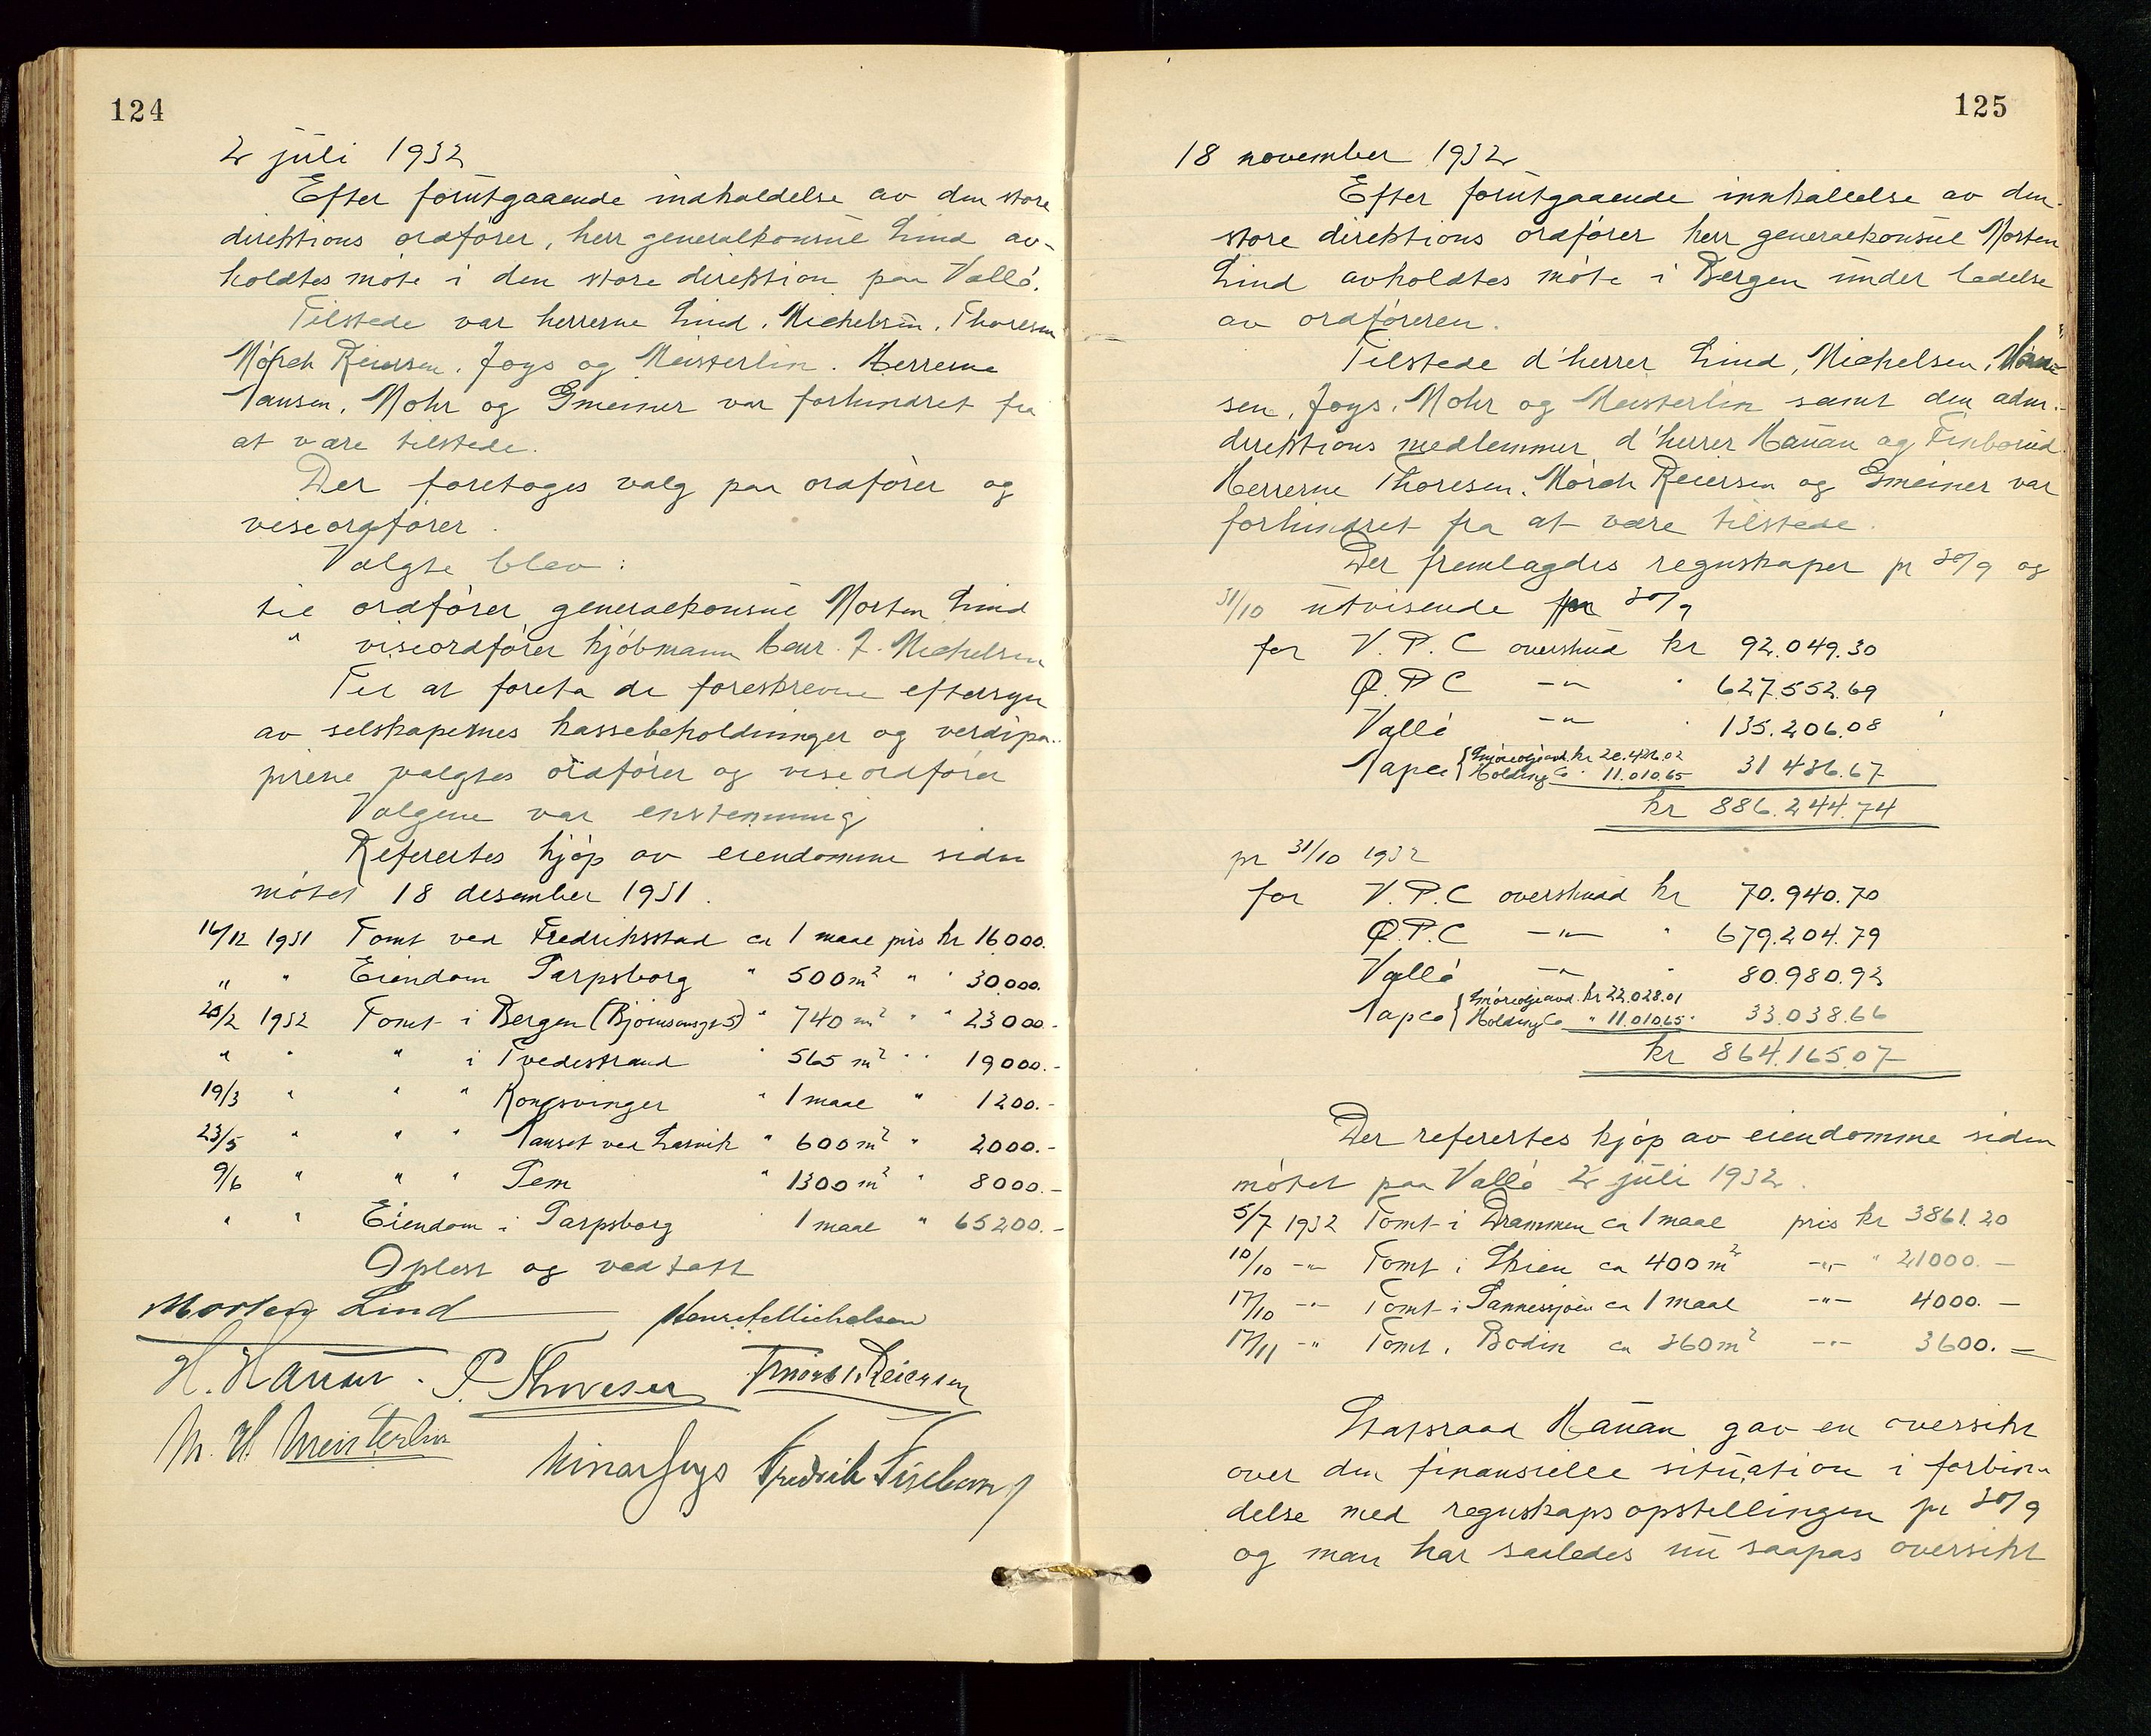 124
2 juli 1932
Efter forutgaaende indkaldelse av den store
direktions ordfører, herr generalkonsul Lind av-
holdtes møte i den store direktion paa Vallø.
Tilstede var herrerne Lind, Michelsen, Thoresen
Mørch Reiersen, Joys og Meisterlin. Herrerne
Jansen, Mohr og Gmeiner var forhindret fra
at være tilstede.
Der foretoges valg paa ordfører og
viseordfører.
Valgte blev:
til ordfører generalkonsul Morten Lind
" viseordfører kjøbmann Henr. J. Michelsen
Til at foreta de foreskrevne eftersyn
av selskapernes kassebeholdninger og verdipa-
pirene valgtes ordfører og viseordfører
Valgene var enstemmig
Refertes kjøp av eiendomme siden
møtet 18 desember 1931.
16/12 1931 Tomt ved Fredriksstad ca 1 maal pris kr 16000.
" " Eiendom Sarpsborg " 500 m² " " 30000.
20/2 1932 Tomt i Bergen (Bjørnsonsgt 5) " 740 m² " " 23000.-
" " " i Tvedestrand " 565 m² " " 19000.-
19/3 " " " Kongsvinger " 1 maal " 1200.-
23/5 " " " Jauset ved Larvik " 600 m² " 2000.-
9/6 " " " Sem " 1300 m² " 8000.-
" " Eiendom i Sarpsborg 1 maal " 65200.-
Oplest og vedtatt
Morten Lind Henr. J. Michelsen
H. Hauan. P. Thoresen F. Mørch Reiersen
M. H. Meisterlin Minar Joys Fredrik Finborud
125
18 november 1932
Efter forutgaaende innkallelse av den
store direktions ordfører herr generalkonsul Morten
Lind avholdtes møte i Bergen under ledelse
av ordføreren.
Tilstede d'herrer Lind, Michelsen,
sen, Joys, Mohr og Meisterlin samt den adm.-
direktions medlemmer d'herrer Hauan og Finborud.
Herrerne Thoresen, Mørch Reiersen og Gmeiner var
forhindret fra at være tilstede.
Der fremlagdes regnskaper pr 30/9 og
31/10 utvisende 30/9
for V.P.C overskud kr 92.049.30
Ø.P.C -"- " 627.552.69
Vallø -"- " 135.206.08
Japco { Smøreoljeavd. kr 20.426.02
Holding Co " 11.010.65 31 436.67
kr 886.244.74
pr 31/10 1932
for V.P.C overskudd kr 70.940.70
Ø.P.C -"- " 679.204.79
Vallø -"- " 80.980.92
Japco { Smøreoljeavd. kr 22.028.01
Holding Co " 11.010.65 33.038.66
kr 864.165.07
Der refertes kjøp av eiendomme siden
møtet paa Vallø 2 juli 1932.
5/7 1932 Tomt i Drammen ca 1 maal pris kr 3861.20
10/10 -"- Tomt i Skien ca 400 m² -"- " 21000.-
17/10 -"- Tomt i Sannessjøen ca 1 maal -"- 4000.-
17/11 -"- Tomt i Bodin ca 360 m² -"- 3600.-
Statsraad Hauan gav en oversikt
over den finansielle situation i forbin-
delse med regnskapsopstellingen pr 30/9
og man har saaledes nu saapas oversikt